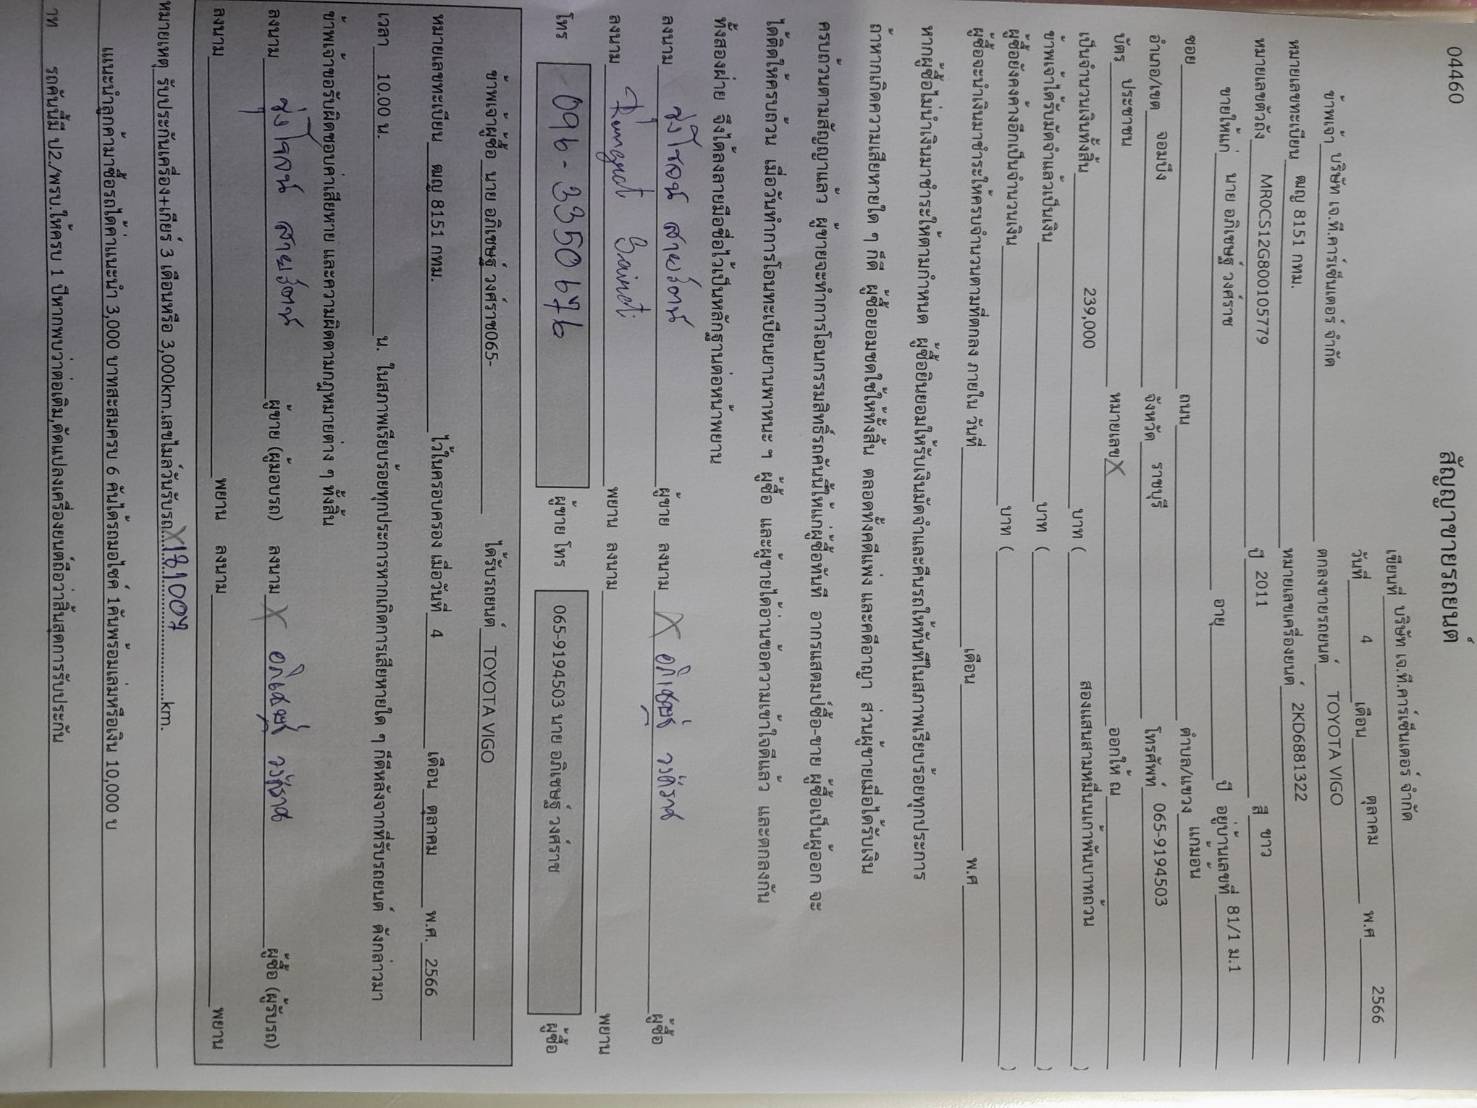 04460
สัญญาขายรถยนต์
เขียนที่ บริษัท เจ.ที.คาร์เซ็นเตอร์ จำกัด
วันที่ 4 เดือน ตุลาคม พ.ศ 2566
ข้าพเจ้า บริษัท เจ.ที.คาร์เซ็นเตอร์ จำกัด ตกลงขายรถยนต์ TOYOTA VIGO
หมายเลขทะเบียน ฒญ 8151 กทม. หมายเลขเครื่องยนต์ 2KD6881322
หมายเลขตัวถัง MR0CS12G800105779 ปี 2011 สี ขาว
ขายให้แก่ นาย อภิเชษฐ์ วงศ์ราช อายุ ปี อยู่บ้านเลขที่ 81/1 ม.1
ซอย ถนน ตำบล/แขวง แก้มอ้น
อำเภอ/เขต จอมบึง จังหวัด ราชบุรี โทรศัพท์ 065-9194503
บัตร ประชาชน หมายเลข X ออกให้ ณ
เป็นจำนวนเงินทั้งสิ้น 239,000 บาท ( สองแสนสามหมื่นนเก้าพันบาทถ้วน )
ข้าพเจ้าได้รับมัดจำแล้วเป็นเงิน บาท ( )
ผู้ซื้อยังคงค้างอีกเป็นจำนวนเงิน บาท ( )
ผู้ซื้อจะนำเงินมาชำระให้ครบจำนวนตามที่ตกลง ภายใน วันที่ เดือน พ.ศ
หากผู้ซื้อไม่นำเงินมาชำระให้ตามกำหนด ผู้ซื้อยินยอมให้รับเงินมัดจำและคืนรถให้ทันทีในสภาพเรียบร้อยทุกประการ
ถ้าหากเกิดความเสียหายใด ๆ ก็ดี ผู้ซื้อยอมชดใช้ให้ทั้งสิ้น ตลอดทั้งคดีแพ่ง และคดีอาญา ส่วนผู้ขายเมื่อได้รับเงิน
ครบถ้วนตามสัญญาแล้ว ผู้ขายจะทำการโอนกรรมสิทธิ์รถคันนี้ให้แก่ผู้ซื้อทันที อากรแสตมป์ซื้อ-ขาย ผู้ซื้อเป็นผู้ออก จะ
ได้ติดให้ครบถ้วน เมื่อวันทำการโอนทะเบียนยานพาหนะ ๆ ผู้ซื้อ และผู้ขายได้อ่านข้อความเข้าใจดีแล้ว และตกลงกัน
ทั้งสองฝ่าย จึงได้ลงลายมือชื่อไว้เป็นหลักฐานต่อหน้าพยาน
ลงนาม ผู้ขาย ลงนาม X อภิเชษฐ์ วงศ์ราช ผู้ซื้อ
ลงนาม พยาน ลงนาม พยาน
โทร 096-3350676 ผู้ขาย โทร 065-9194503 นาย อภิเชษฐ์ วงศ์ราช ผู้ซื้อ
ข้าพเจ้าผู้ซื้อ นาย อภิเชษฐ์ วงศ์ราช065- ได้รับรถยนต์ TOYOTA VIGO
หมายเลขทะเบียน ฒญ 8151 กทม. ไว้ในครอบครอง เมื่อวันที่ 4 เดือน ตุลาคม พ.ศ. 2566
เวลา 10.00 น. น. ในสภาพเรียบร้อยทุกประการหากเกิดการเสียหายใด ๆ ก็ดีหลังจากที่รับรถยนต์ ดังกล่าวมา
ข้าพเจ้าขอรับผิดชอบค่าเสียหาย และความผิดตามกฎหมายต่าง ๆ ทั้งสิ้น
ลงนาม ผู้ขาย (ผู้มอบรถ) ลงนาม X อภิเชษฐ์ วงศ์ราช ผู้ซื้อ (ผู้รับรถ)
ลงนาม พยาน ลงนาม พยาน
หมายเหตุ รับประกันเครื่อง+เกียร์ 3 เดือนหรือ 3,000km.เลขไมล์วันรับรถ X181007 km.
แนะนำลูกค้ามาซื้อรถได้ค่าแนะนำ 3,000 บาทสะสมครบ 6 คันได้รถมอไซค์ 1คันพร้อมเล่มหรือเงิน 10,000 บ
าท รถคันนี้มี ป2./พรบ.ให้ครบ 1 ปีหากพบว่าต่อเติม,ดัดแปลงเครื่องยนต์ถือว่าสิ้นสุดการรับประกัน